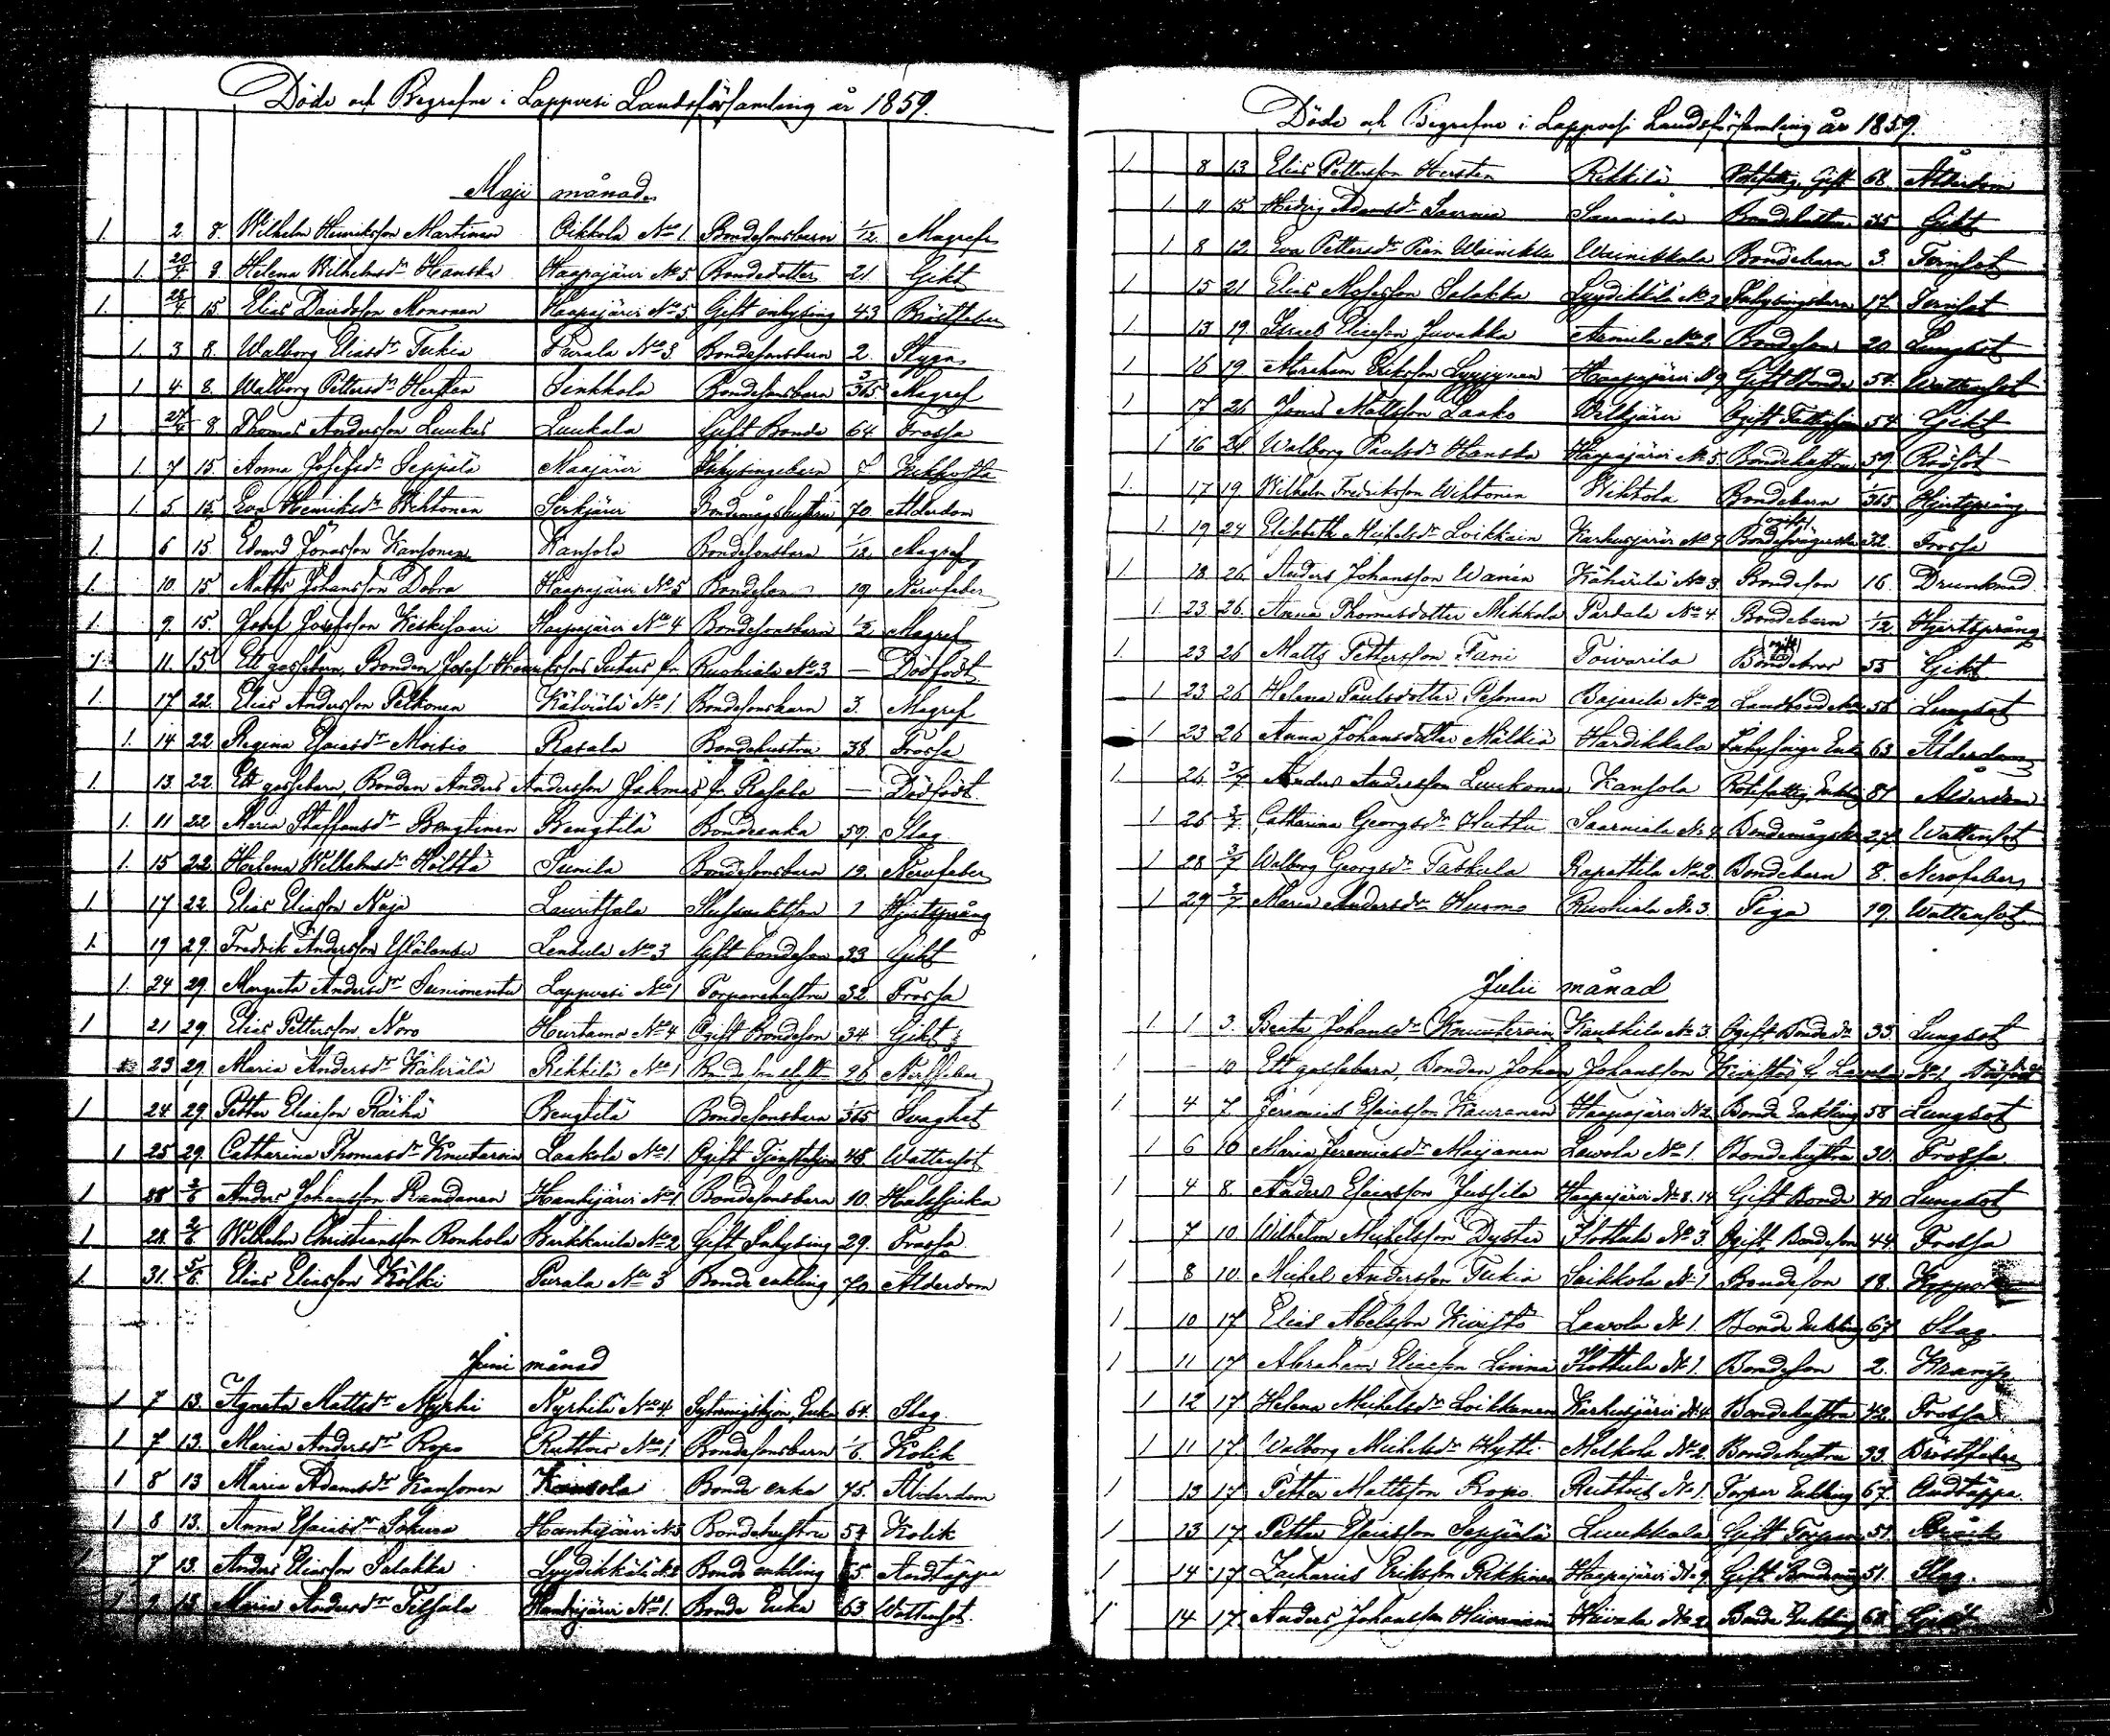 Döde och Begrafne i Lappvesi Landsförsamling år 1859.
Maji månad
1. 2. 8. Wilhelm Henriksson Martinen Oikkola No 1. Bondesonsbarn 1/12. Magref
1. 20/4 8. Helena Wilhelmsdr Hanska Haapajärvi No 5 Bondedotter 21. Gikt
1. 28/4 15. Elias Davidsson Mononen Haapajärvi No 5 Gift inhysing 43 Bröstfeber
1. 3 8. Walborg Eliasdr Tukia Purala No 3 Bondesonsbarn 2. Stygn
1 4 8. Walborg Pettersdr Hersten Sinkkola Bondesonsbarn 3/365 Magref
1 27/4 8. Thomas Andersson Luukas Luukala Gift Bonde 64 Frossa
1. 7 15. Anna Josefsdr Seppälä Maajärvi Inhysingebarn Kikhosta
1. 5. 15. Eva Henriksdr Wehtonen Serkjärvi Bondemågshustru 70. Ålderdom
1. 6 15. Edvard Jonasson Kansonen Kansola Bondesonsbarn 1/12. Magref
1. 10. 15. Matts Johansson Dobra Haapajärvi No 5 Bondeson 19 Nervfeber
1. 9. 15. Josef Josefsson Keskisaari Haapajärvi No 4 Bondesonsbarn 1/2 Magref
1 11. 15 Ett gossebarn, Bonden Josef Henrikssons Suters fr. Ruohiala No 3 — Dödfödt.
1. 17 22. Elias Andersson Pelkonen Kälviälä No 1. Bondesonsbarn 3. Magref
1. 14 22. Regina Esaiasdr Moisio Rasala Bondehustru 38 Frossa
1. 13. 22. Ett gossebarn, Bonden Anders Andersson Jahmas fr Rasala — Dödfödt.
1. 11 22 Maria Staffansdr Bengtinen Bengtilä Bondeenka 59. Slag
1. 15 22. Helena Wilhelmsdr Hölttä Sunila Bondesonsbarn 12. Nervfeber
1 17 22 Elias Eliasson Noja Lauritsala Slussvaktson 1 Hjertsprång
1. 19 29. Fredrik Andersson Ylälentu Lentula No 3 Gift bondeson 33 Gikt
1. 24 29 Margreta Andersdr Sunimentu Lappvesi No 1 Torparehustru 32. Frossa
1 21 29. Elias Pettersson Noro Hurtama No 4 Ogift Bondeson 34. Gikt
23 29. Maria Andersdr Kähärälä Rikkilä No 1 26 Nerffeber
1 24 29. Petter Eliasson Räihä Bengtilä Bondesonsbarn 1/365 Svaghet
1 25 29. Catharina Thomasdr Knutarein Laakola No 1. Ogift 48. Wattusot
1 28 2/6 Anders Johansson Randanen Hanhijärvi No 1. Bondesonsbarn 10. Halssjuka
1. 28. 2/6 Wilhelm Christiansson Ronkola Karkkarila No 2 Gift Inhysing 29. Frossa
1. 31. 5/6. Elias Eliasson Kölki Purala No 3 Bonde enkling 70. Ålderdom
Juni månad
1 7 13. Agneta Mattsdr Nyrhi Nyrhilä No 4. Enka 64. Slag
1 7 13. Maria Andersdr Ropo Ruthois No 1. Bondesonsbarn 1/6. Kolik
1 8 13 Maria Adamsdr Kansonen Kansola Bonde enka 75. Ålderdom
1 8 13. Anna Esaiasdr Sokura Hanhijärvi No 3 Bondehustru 54 Kolik
7 13. Anders Eliasson Salakka Lyydikkälä No 2 Bonde enkling 65 Andtäppa
1 9 13 Maria Andersdr Tissala Hanhijärvi No 1. Bonde Enka 63 Wattusot.
Döde och Begrafne i Lappvesi Landsförsamling år 1859.
1. 8 13 Elias Pettersson Hersten Rikkilä Rotefattig Gift 68. Ålderdom
1. 11 15 Hedvig Adamsdr Saarnia Saarniala Bondehustru 35 Gikt
1 8 12 Eva Pettersdr Pien Wainikka Wainikkala Bondebarn 3. Torrsot
1 15 21 Elias Mosesson Salakka Lyydikkälä No 2 Inhysingsbarn 17. Torrsot
1. 13 19. Israel Eliasson Juvakka Armila No 2. Bondeson 20 Lungsot
1 16 19 Abraham Eriksson Lyyjynen Haapajärvi No 9 Gift Bonde 54. Wattusot
1 17 26 Jonas Mattsson Laako Wilkjärvi Ogift 54 Gikt
1 16 26 Walborg Paulsdr Hanska Haapajärvi No 5. Bondehustru 59. Rödsot
1. 17 19 Wilhelm Fredriksson Wihtonen Wihtola Bondebarn 1/365 Hjertsprång
1. 19 24 Elisabeth Michelsdr Loikkain Karhusjärvi No 4 Bondesvägerska 32. Frossa
1. 18. 26. Anders Johansson Wanin Kähärilä No 3 Bondeson 16. Drunknad
1. 23. 26. Anna Thomasdotter Mikkola Partala No 4. Bondebarn 1/12 Hjertsprång
1. 23 26 Matts Pettersson Tani Toivarila Bondebror (ogift) 55 Gikt
1 23 26 Helena Paulsdotter Pesonen Bajarila No 2 56 Lungsot
1 23 26 Anna Johansdotter Mälkiä Hardikkala Inhysinge Enka 63 Ålderdom
1. 26. 3/7 Anders Andersson Luukonen Kansola Rotefattig, Enkling 81 Ålderdom
1 26 3/7 Catharina Georgsdr Huttu Saarniala No 4 27. Wattusot
1 28 3/7 Walborg Georgsdr Taskula Rapattila No 2. Bondebarn 8. Nervfeber
1 29 3/7 Maria Andersdr Huomo Ruohiala No 3. Piga 19. Wattusot.
Julii månad
1. 1 3. Beata Johansdr Knuuterein Kaukkila No 3. Ogift Bondedr 33. Lungsot
1 — 10 Ett gossebarn, Bonden Johan Johansson Kiviistös fr Lavola No 1. Dödfödt
1. 4 7. Jeremias Esaiasson Kauranen Haapajärvi No 2. Bonde Enkling 58 Lungsot
1 6 10 Maria Jeremiasdr Maijanen Lavola No 1. Bondehustru 30. Frossa.
1 4 8. Anders Esaiasson Jussila Haapajärvi No 8. 14 Gift Bonde 40 Lungsot
1 7 10 Wilhelm Michelsson Dyster Hottula No 3. Ogift Bondeson 44. Frossa
1 8 10. Michel Andersson Tukia Soikkola No 1. Bondeson 18. Koppor
1 10 17 Elias Abelsson Kiviistö Lavola No 1. Bonde Enkling 67 Slag.
1 11 17 Abraham Eliasson Linna Hottula No 1. Bondeson 2. Kramp
1 12 17 Helena Michelsdr Loikkanen Karhusjärvi No 4. Bondehustru 42. Frossa
1 11 17. Walborg Michelsdr Hytti Melkola No 2. Bondehustru 33. Bröstfeber
1 13 17 Petter Mattsson Ropo Ruthois No 1. Torpar Enkling 67. Andtäppa.
1 13 17. Petter Esaiasson Seppälä Luukkala Gift Torpare 51. Bråck
1 14 17 Zacharias Eriksson Rikkinen Haapajärvi No 9. Gift Bondemåg 51. Slag.
1 14 17. Anders Johansson Huvanain Huvala No 2. Bonde Enkling 68. Gikt